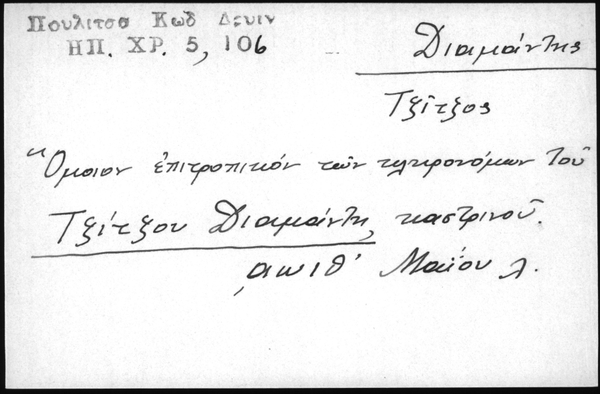 Πουλιτσα Κωδ Δενιν
ΗΠ. ΧΡ. 5, 106
Διαμάντης
Τζῖτζος
"Ὅμοιον ἐπιτροπικόν τῶν κληρονόμων τοῦ
Τζίτζου Διαμάντη, καστρινοῦ.
͵αωιθ' Μαΐου λ.